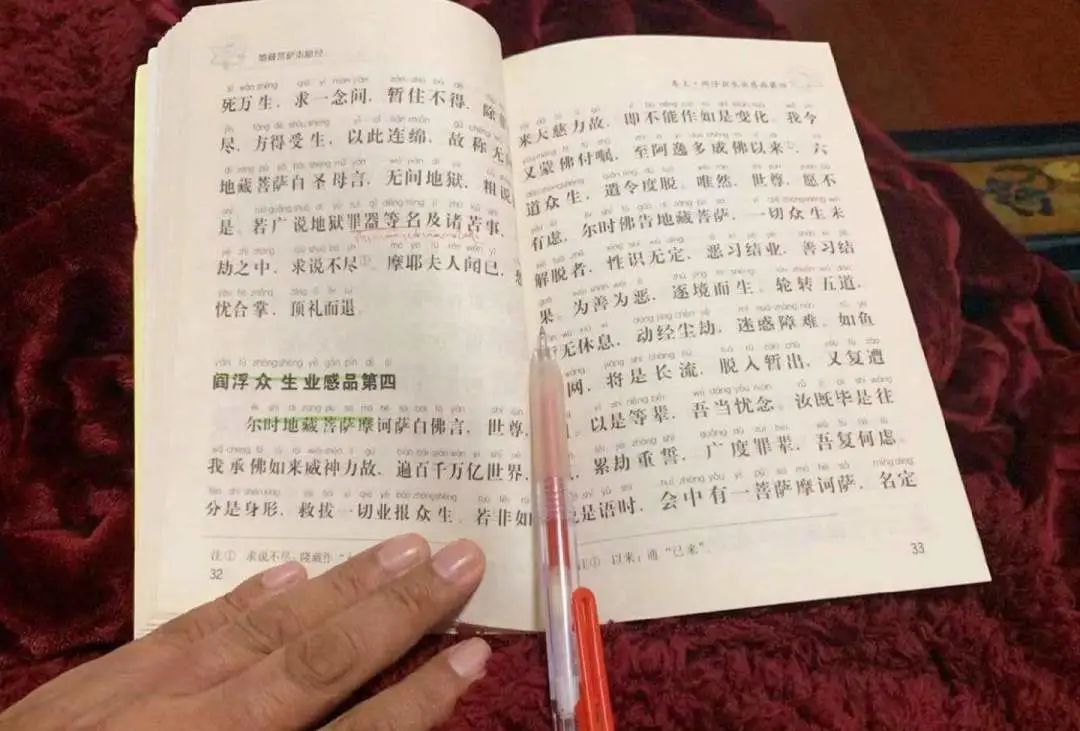 地藏菩萨本愿经
死万生，求一念间，暂住不得，除非
尽，方得受生，以此连绵，故称无间
地藏菩萨白圣母言，无间地狱，粗说
是。若广说地狱罪器等名及诸苦事，
劫之中，求说不尽①。摩耶夫人闻已，愁
忧合掌，顶礼而退。
阎浮众生业感品第四
尔时地藏菩萨摩诃萨白佛言，世尊，
我承佛如来威神力故，遍百千万亿世界，
分是身形，救拔一切业报众生。若非如
注① 求说不尽：隆藏作
32
卷上·阎浮众生业感品第四
来大慈力故，即不能作如是变化。我今
又蒙佛付嘱，至阿逸多成佛以来①，六
道众生，遣令度脱。唯然，世尊，愿不
有虑。尔时佛告地藏菩萨，一切众生未
解脱者，性识无定，恶习结业，善习结
果。为善为恶，逐境而生。轮转五道，
无休息，动经尘劫，迷惑障难。如鱼
网，将是长流，脱入暂出，又复遭
以是等辈，吾当忧念。汝既毕是往
累劫重誓，广度罪辈，吾复何虑。
说是语时，会中有一菩萨摩诃萨，名定
注① 以来：通“已来”。
33